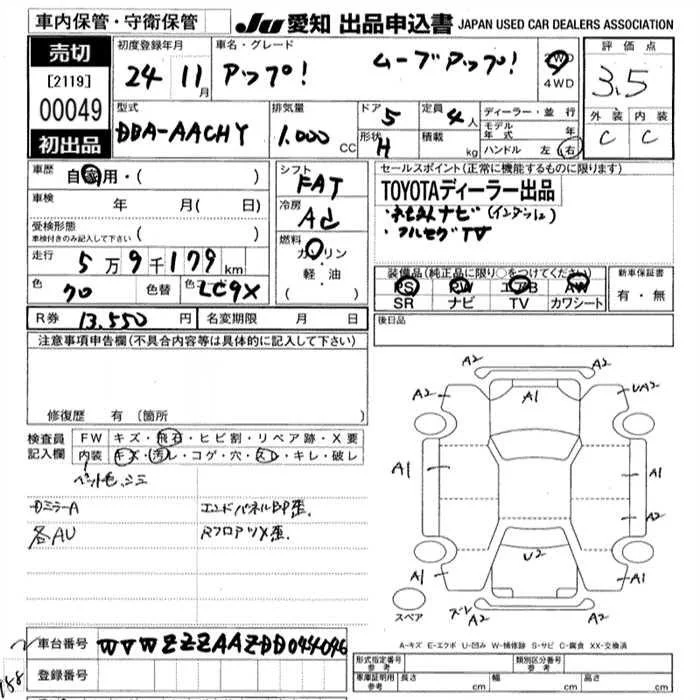 車内保管・守衛保管
JU 愛知 出品申込書 JAPAN USED CAR DEALERS ASSOCIATION
売切
[2119]
00049
初出品
初度登録年月
24 11月
車名・グレード
アップ! ムーブアップ!
2WD
4WD
評価点
3.5
外装 内装
C C
型式
DBA-AACHY
排気量
1.000 CC
ドア 5
形状 H
定員 4人
積載 kg
ディーラー・並行
モデル年式 年
ハンドル 左 右
車歴 自家用・( )
車検 年 月( 日)
受検形態
車検付きのみ記入して下さい ( )
走行 5万9千179km
色 70 色替 色 LC9X
シフト FAT
冷房
燃料
ガソリン
・
軽・油
( )
セールスポイント(正常に機能するものに限ります)
TOYOTAディーラー出品
・フルセグTV
装備品(純正品に限り○をつけてください)
PS PW エアB AW
SR ナビ TV カワシート
新車保証書
有・無
R券 13.550円 名変期限 月 日
後日品
注意事項申告欄(不具合内容等は具体的に記入して下さい)
修復歴 有(箇所
検査員記入欄
FW キズ・飛石・ヒビ割・リペア跡・X要
内装 キズ・汚レ・コゲ・穴・スレ・キレ・破レ
ペット毛、シミ
ドミラーA
各AU
エンドパネルBP歪.
RフロアツメX歪.
A2 A2
A2 A1 UA2
A1 A1
A2
A1 U2 A1
スペア
ズレ A2 A2
A-キズ E-エクボ U-凹み W-補修跡 S-サビ C-腐食 XX-交換済
車台番号 WVWZZZAAZDD044046
登録番号
形式指定番号
参考
類別区分番号
参考
車庫証明用
参考
長さ cm 幅 cm 高さ cm